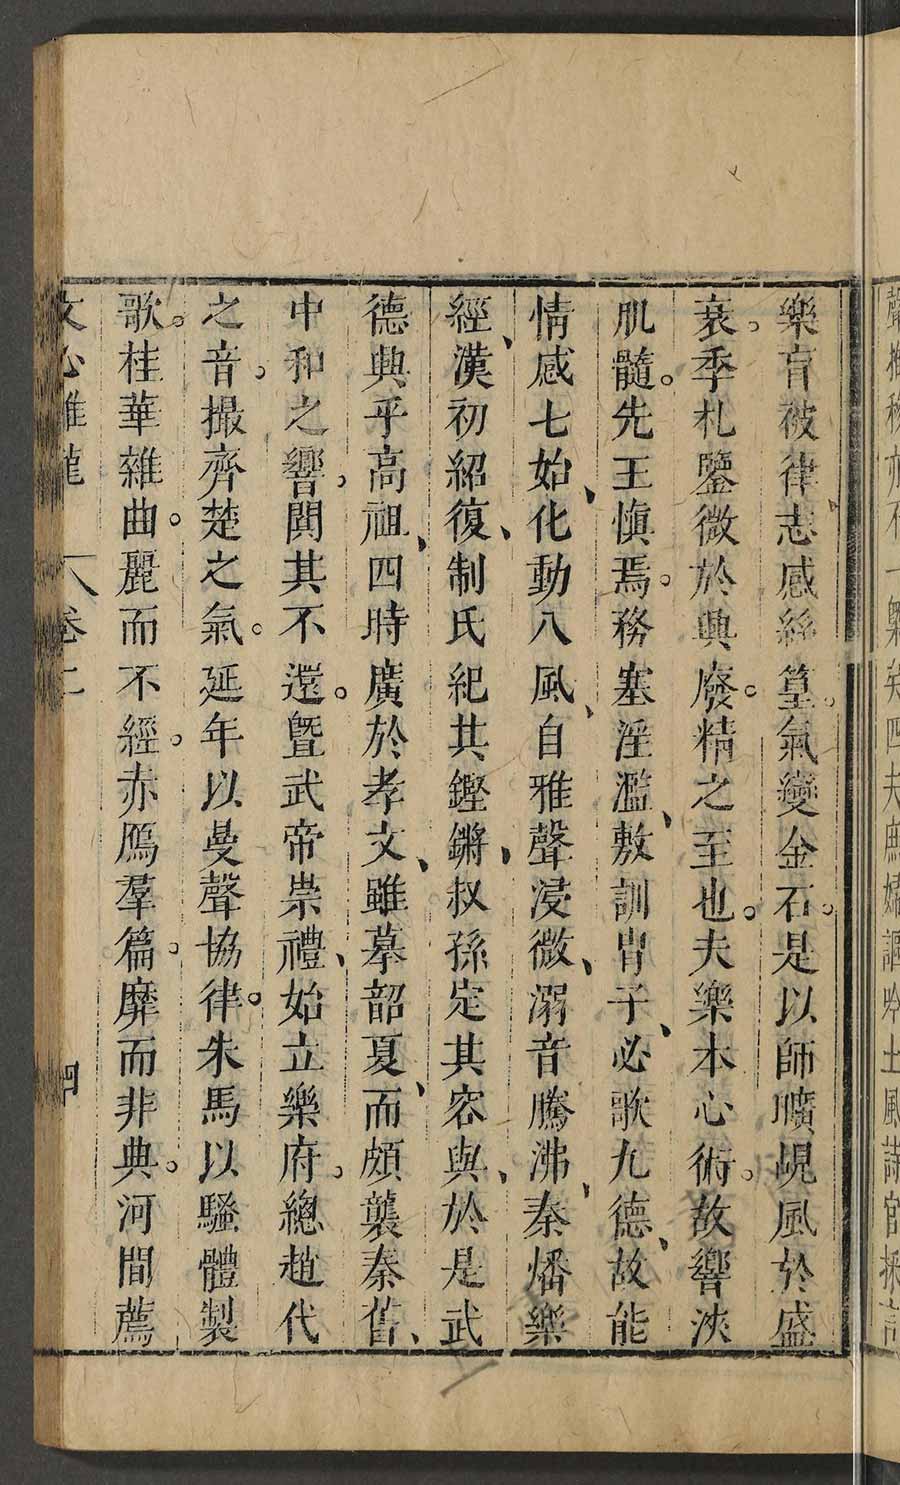 樂盲被律、志感絲篁。氣變金石。是以師曠覘風於盛
衰。季札鑒微於興廢。精之至也。夫樂本心術。故響浹
肌髓。先王慎焉。務塞淫濫、敷訓胄子、必歌九德、故能
情感七始、化動八風、自雅聲浸微、溺音騰沸、秦燔樂
經、漢初紹復、制氏紀其鏗鏘、叔孫定其容與、於是武
德興乎高祖、四時廣於孝文、雖摹韶夏、而頗襲秦舊、
中和之響、闃其不還。暨武帝崇禮、始立樂府。總趙代
之音。撮齊楚之氣。延年以曼聲協律。朱馬以騷體製
歌。桂華雜曲。麗而不經。赤鴈羣篇。靡而非典。河間薦
文心雕龍 卷二 四